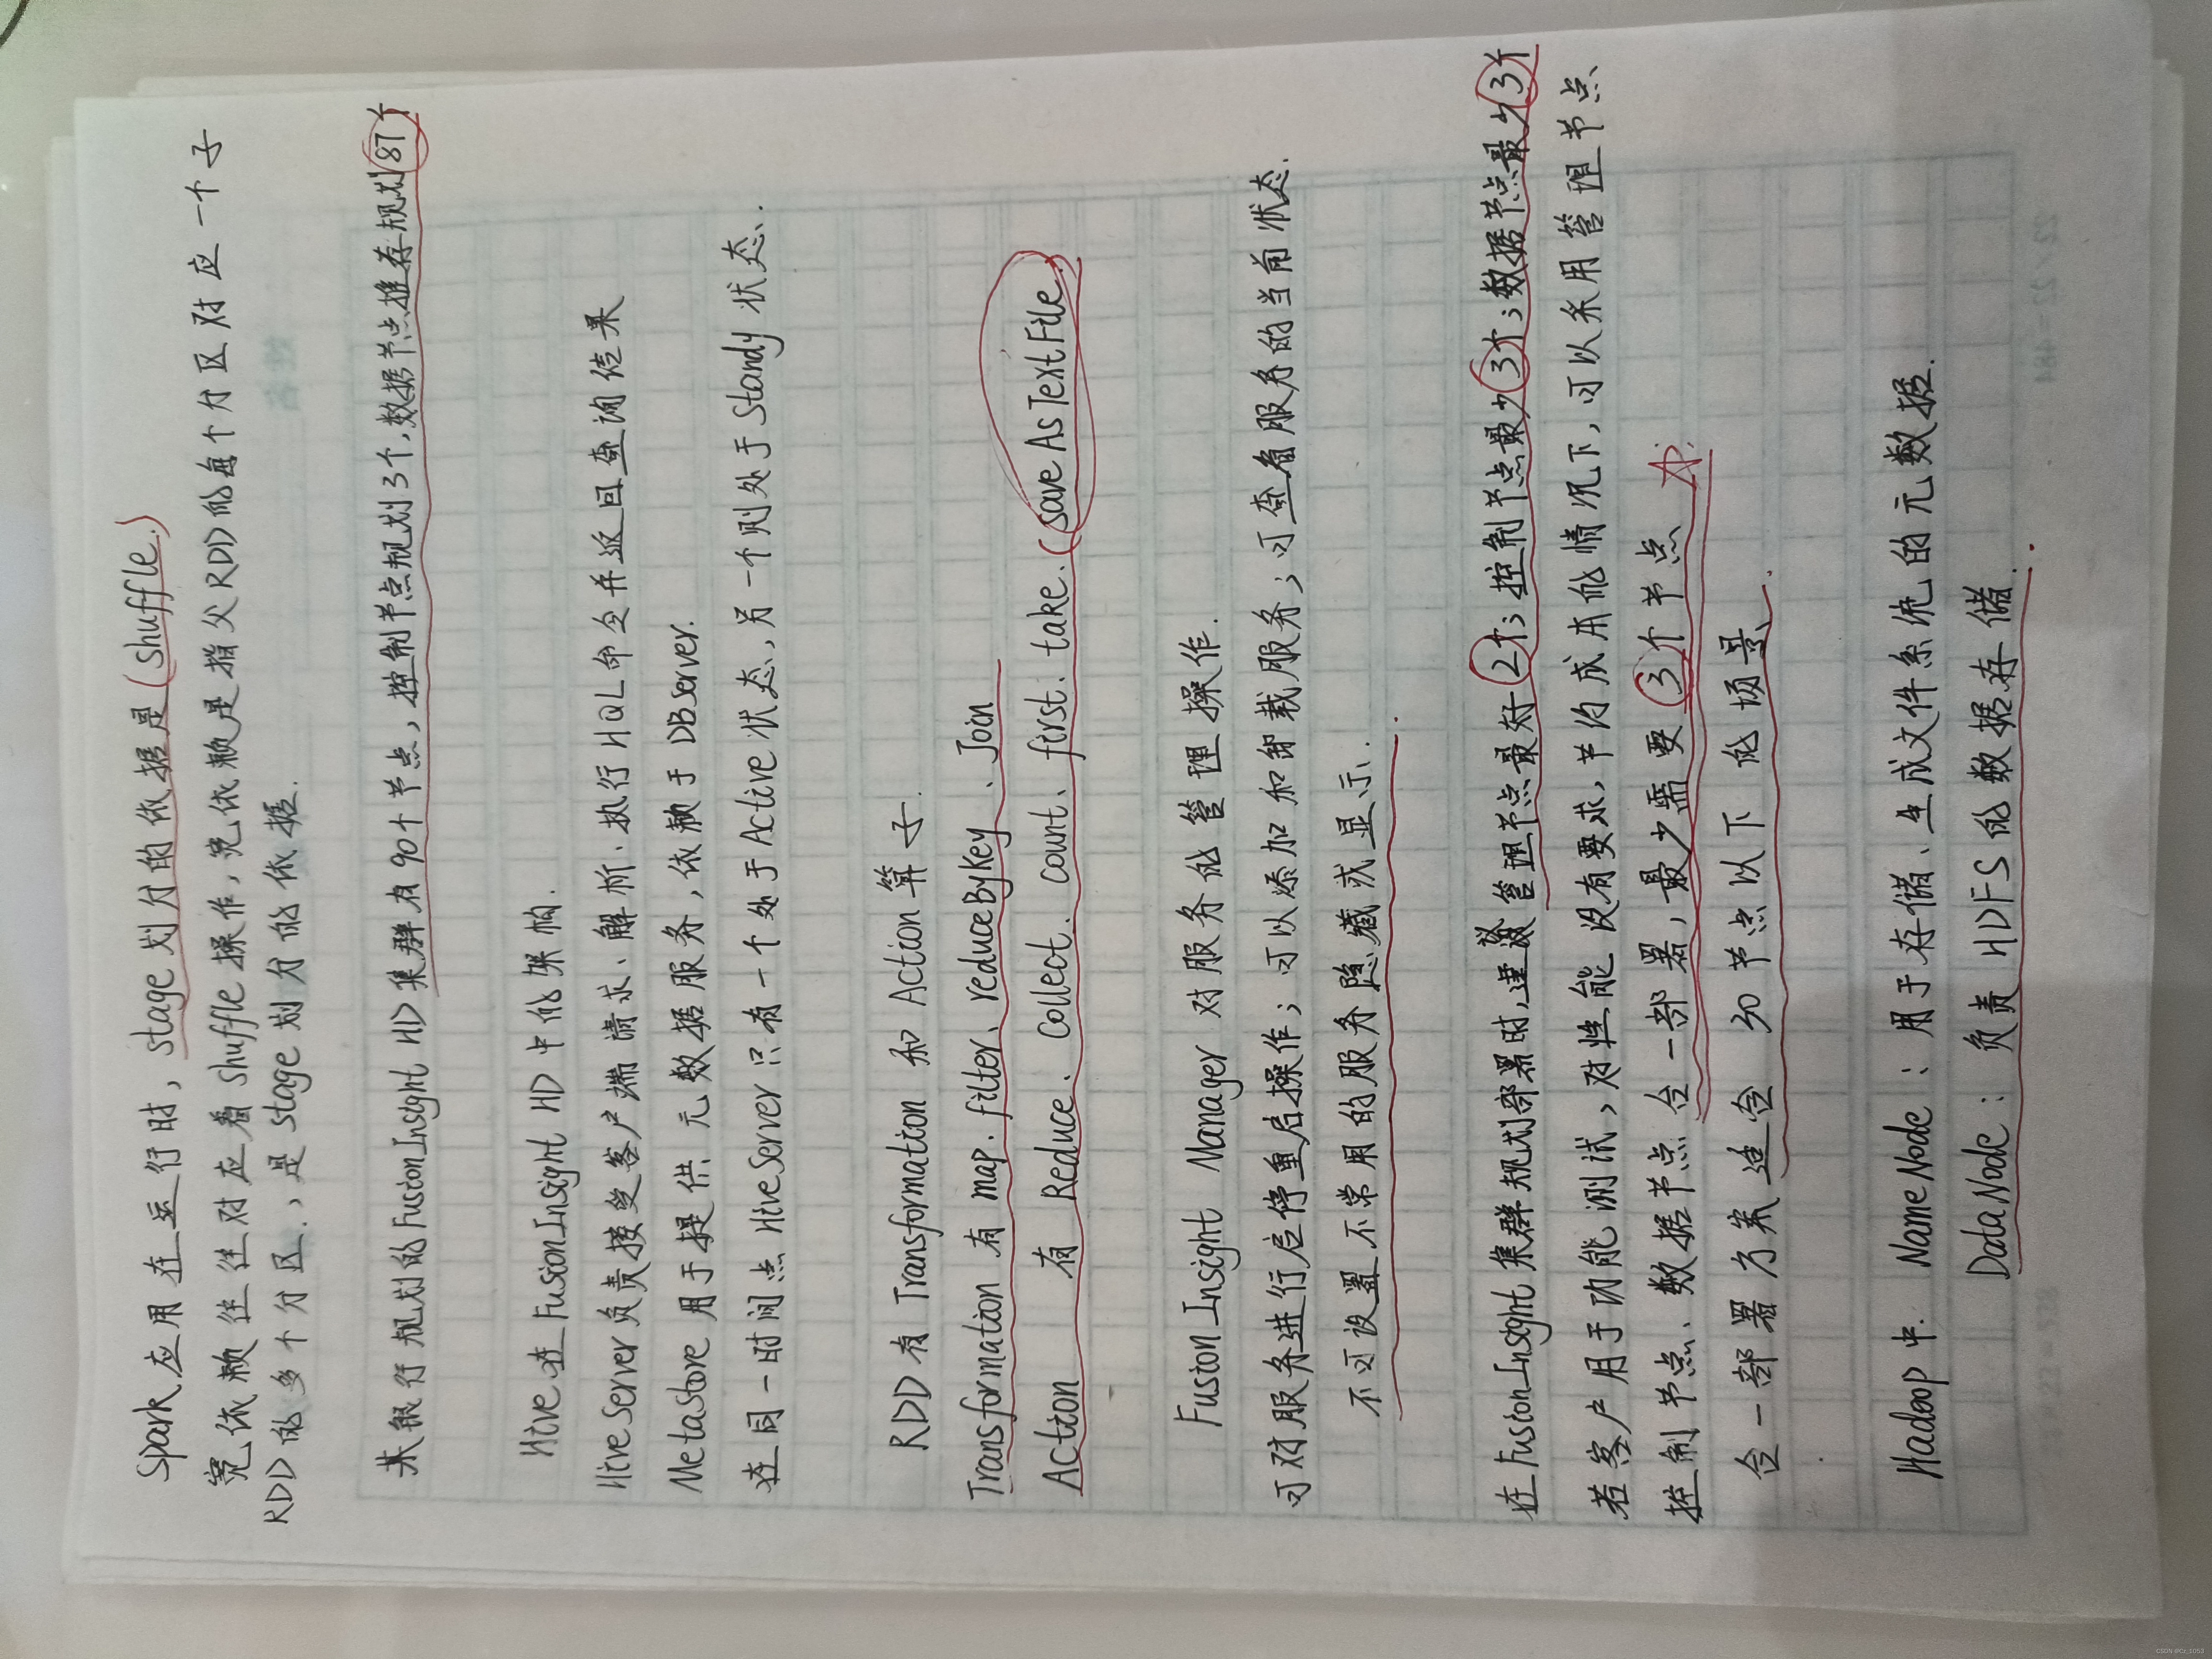 Spark应用在运行时，stage划分的依据是(shuffle.)
宽依赖往往对应着shuffle操作，宽依赖是指父RDD的每个分区对应一个子
RDD的多个分区.，是stage划分的依据.
某银行规划的FusionInsight HD集群有90个节点，控制节点规划3个，数据节点推荐规划87个
Hive在FusionInsight HD中的架构.
HiveServer负责接受客户端请求、解析、执行HQL命令并返回查询结果
MetaStore用于提供元数据服务，依赖于DBServer.
在同一时间点HiveServer只有一个处于Active状态，另一个则处于Standy状态.
RDD有Transformation和Action算子.
Transformation有map.filter、reduceByKey、Join
Action 有Reduce、collect.count、first.take.(saveAsTextFile.)
FusionInsight Manager对服务的管理操作.
可对服务进行启停重启操作；可以添加和卸载服务；可查看服务的当前状态.
不可设置不常用的服务隐藏或显示.
在FusionInsight集群规划部署时，建议管理节点最好2个；控制节点最少3个；数据节点最少3个
若客户用于功能测试，对性能没有要求，节约成本的情况下，可以采用管理节点、
控制节点、数据节点合一部署，最少需要3个节点
合一部署方案适合30节点以下的场景.
Hadoop中. NameNode：用于存储、生成文件系统的元数据.
DataNode：负责HDFS的数据存储.
姓名
22×22=484
CSDN @CX_1053